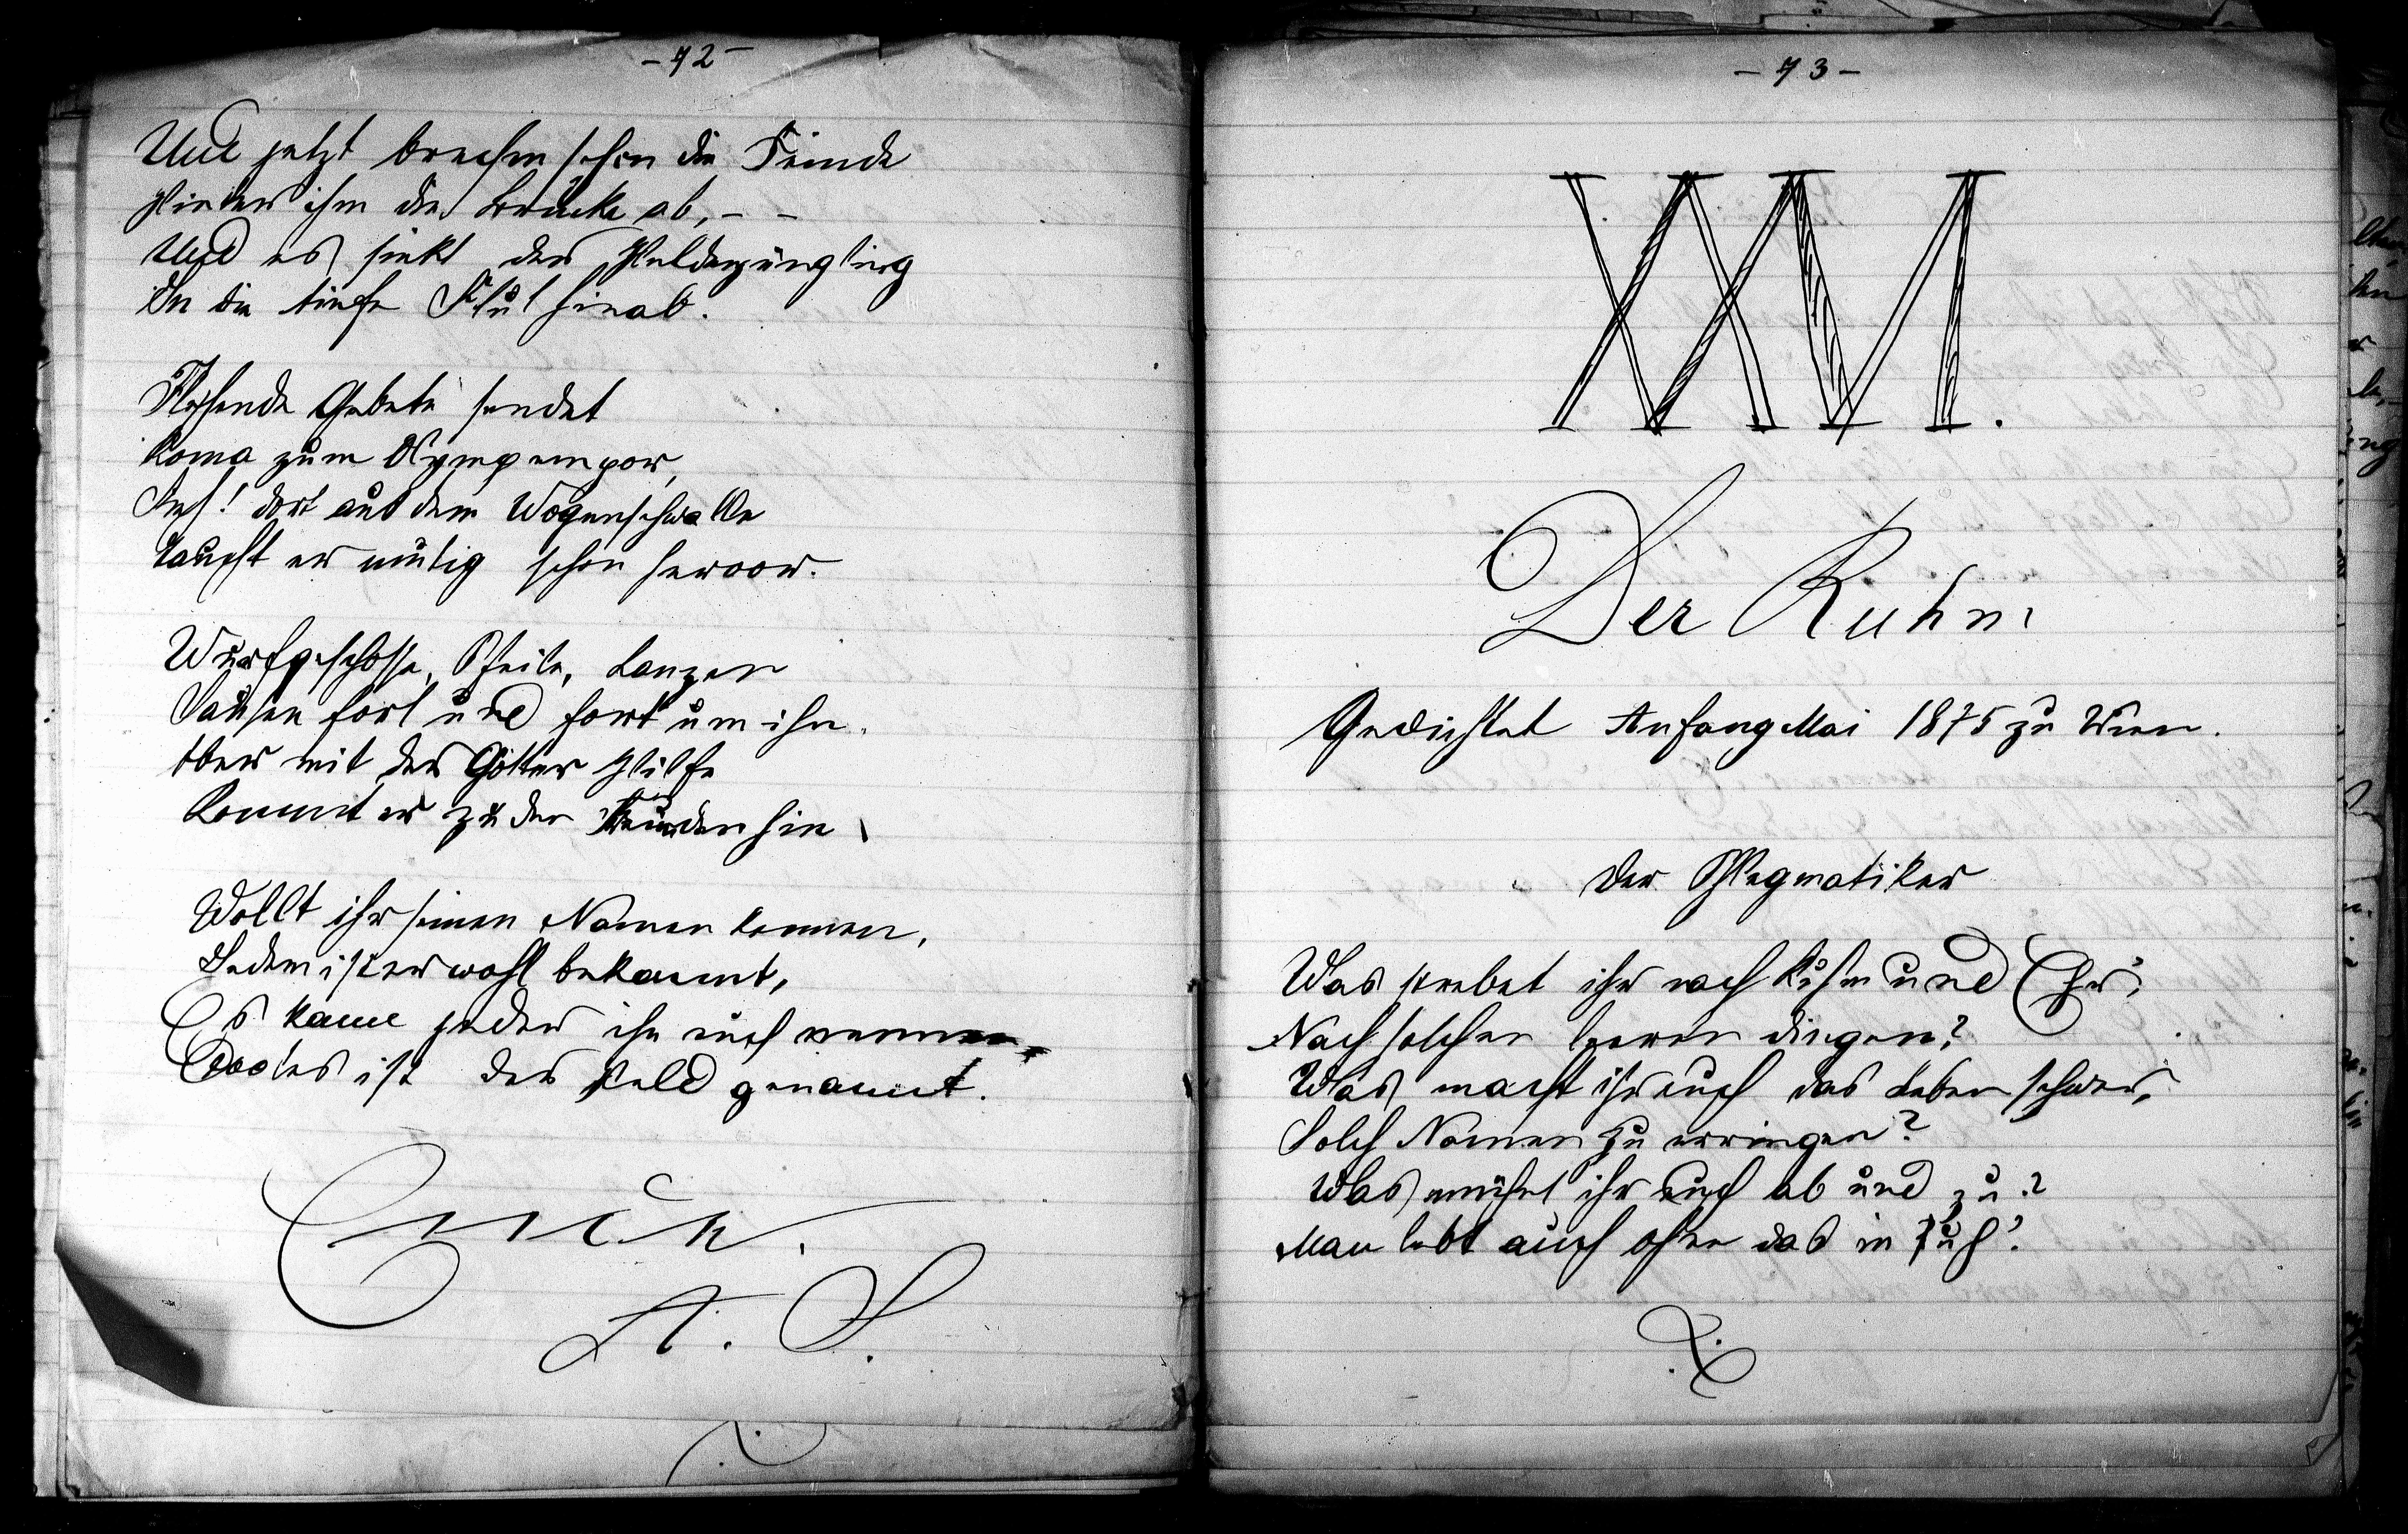 - 72 -
Und jetzt brechen schon die Feinde
Hinter ihm die Brücke ab, - -
Und es sinkt der Heldenjüngling
In die tiefe Flut hinab.
Flehende Gebete sendet
Roma zum Olymp empor,
Ach! dort aus dem Wogenschwalle
Taucht er mutig schon hervor.
Wurfgeschosse, Pfeile, Lanzen
Sausen fort und fort um ihn.
Aber mit der Götter Hilfe
Kommt er zu den Freunden hin.
Wollt ihr seinen Namen kennen,
Jedem ist er wohl bekannt,
Es kann jeder ihn euch nennen,
Cocles ist der Held genannt.
Ende.
A. S.
- 73 -
XXVI.
Der Ruhm
Gedichtet Anfang Mai 1875 zu Wien.
Der Phlegmatiker
Was strebet ihr nach Ruhm und Ehr',
Nach solchen leeren Dingen?
Was macht ihr euch das Leben schwer,
Solch Namen zu erringen?
Was mühet ihr euch ab und zu?
Man lebt auch ohne das in